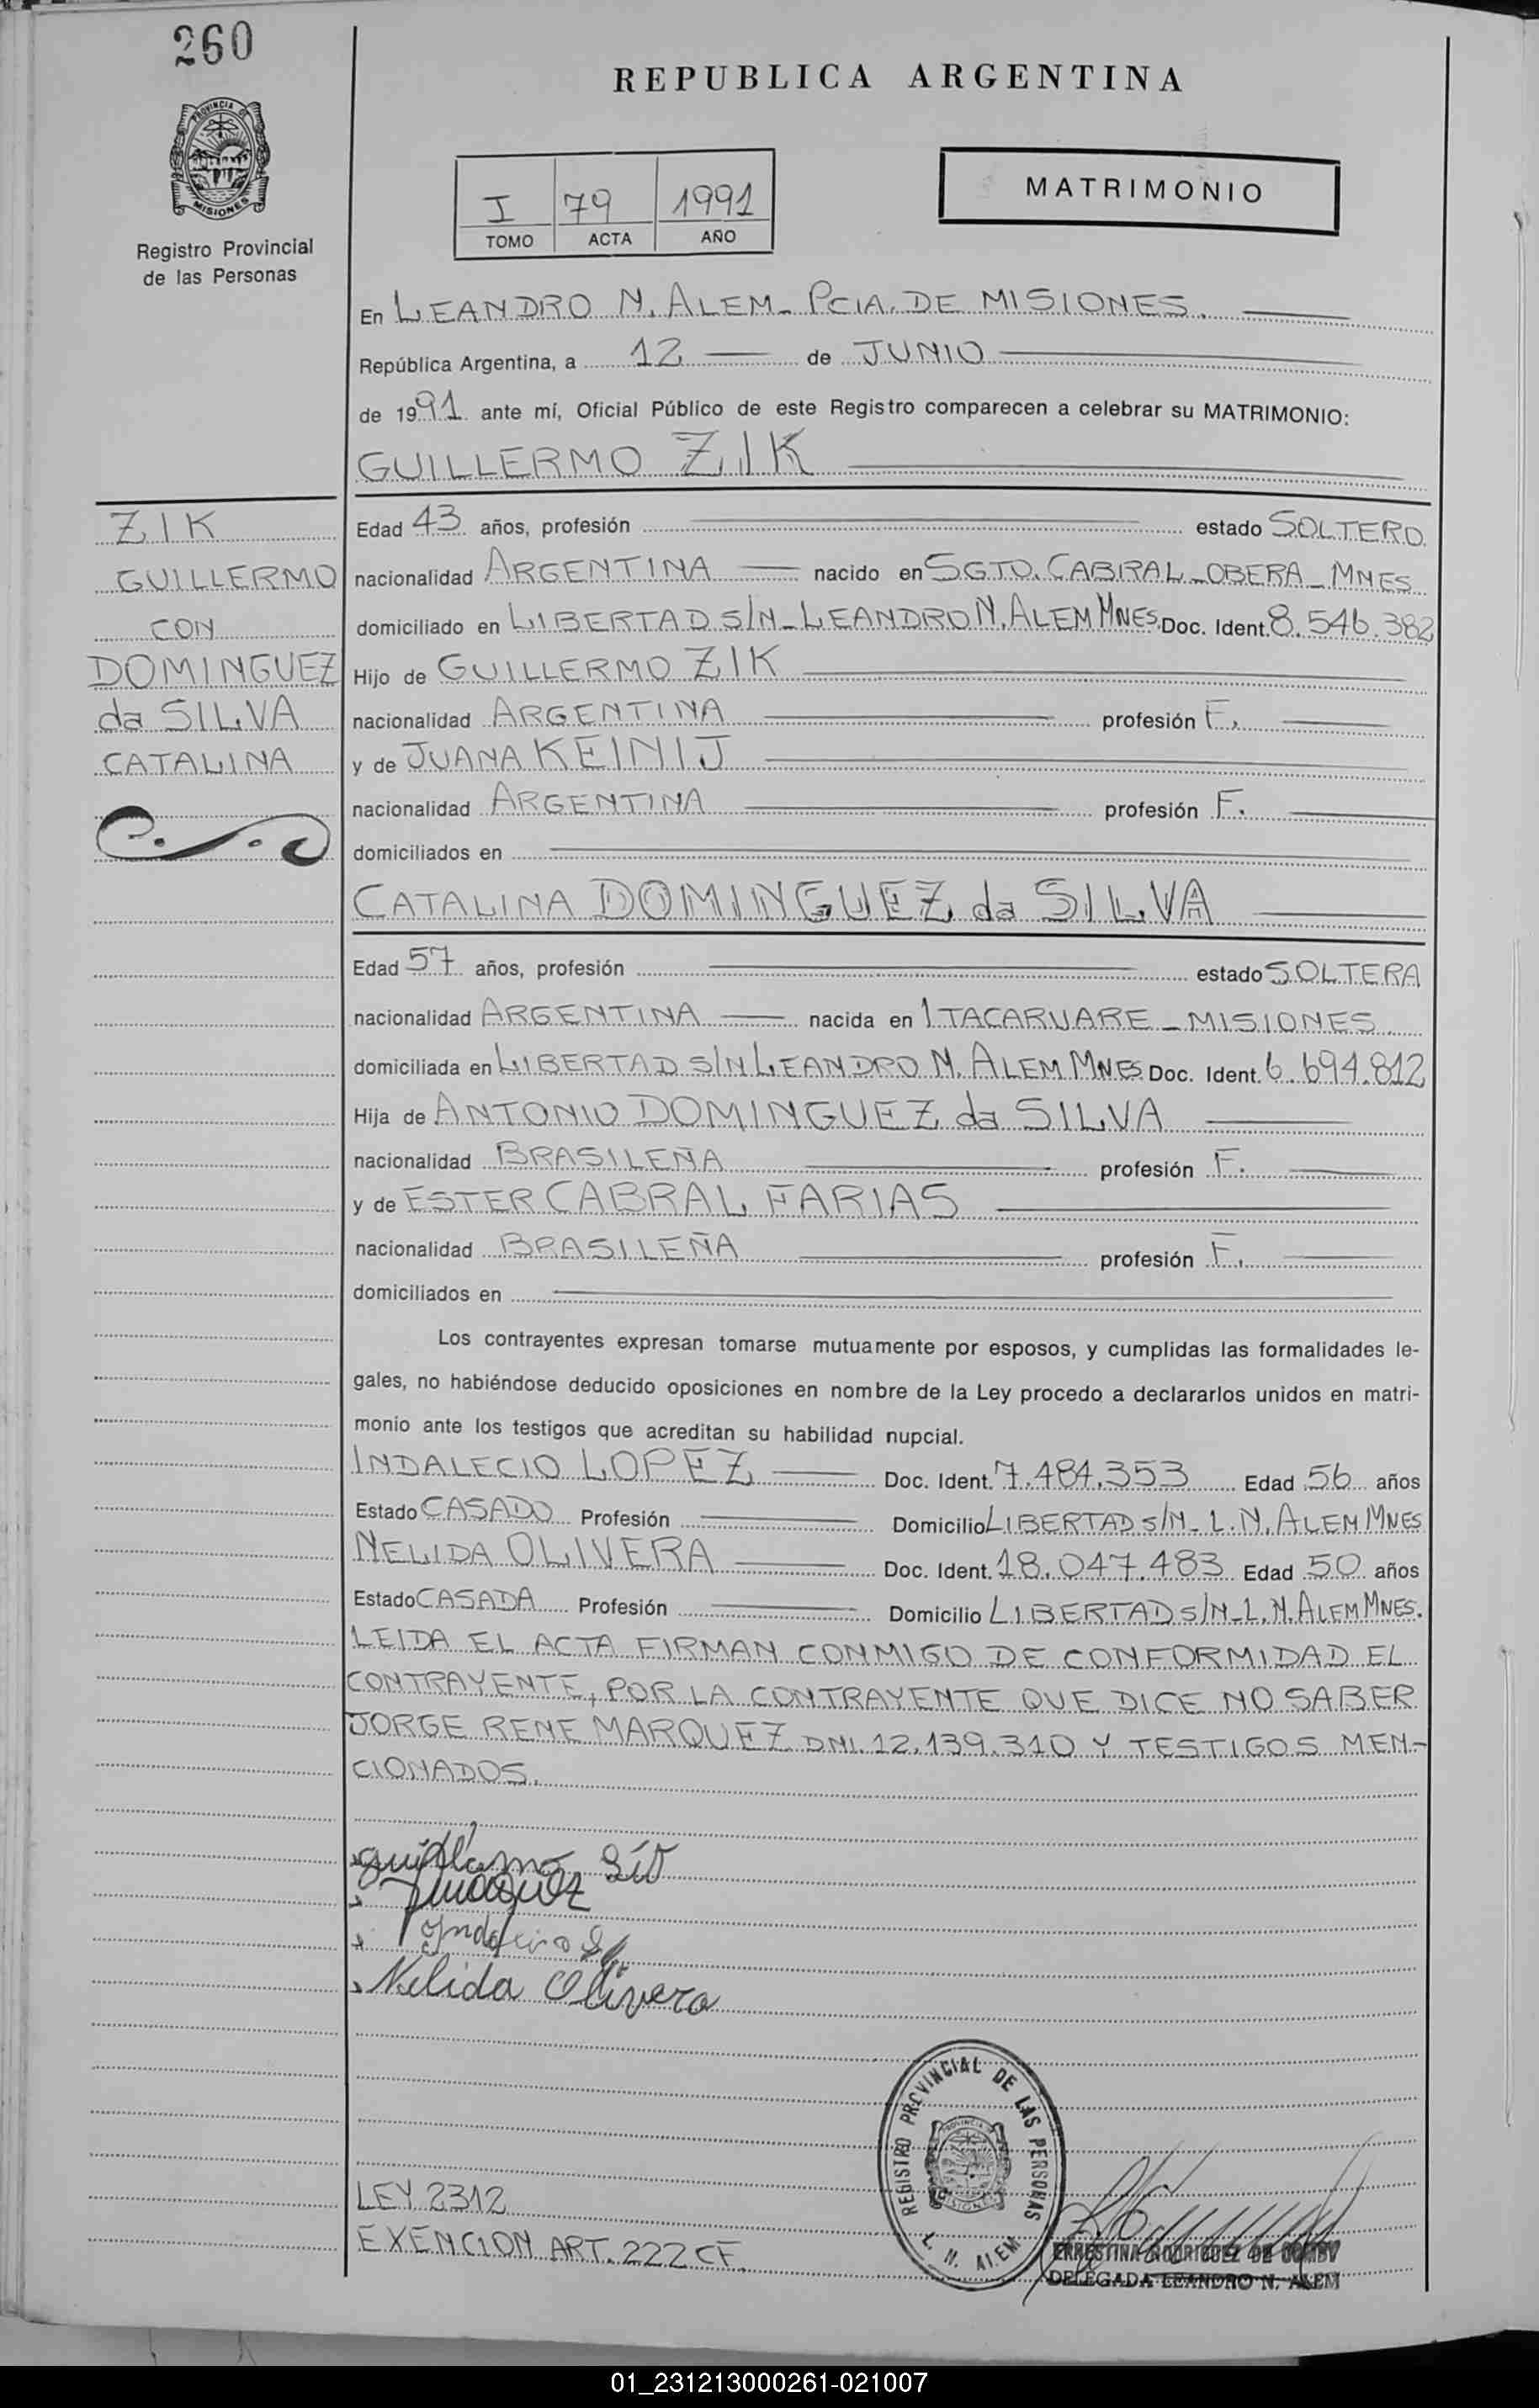 260
PROVINCIA DE
MISIONES
Registro Provincial
de las Personas
REPUBLICA ARGENTINA
I 79 1991
TOMO ACTA AÑO
MATRIMONIO
En LEANDRO N. ALEM - PCIA. DE MISIONES.
República Argentina, a 12 de JUNIO
de 1991 ante mí, Oficial Público de este Registro comparecen a celebrar su MATRIMONIO:
GUILLERMO ZIK
ZIK
GUILLERMO
CON
DOMINGUEZ
da SILVA
CATALINA
Edad 43 años, profesión estado SOLTERO
nacionalidad ARGENTINA nacido en SGTO. CABRAL - OBERA - MNES
domiciliado en LIBERTAD S/N - LEANDRO N. ALEM MNES. Doc. Ident. 8.546.382
Hijo de GUILLERMO ZIK
nacionalidad ARGENTINA profesión F.
y de JUANA KEINIJ
nacionalidad ARGENTINA profesión F.
domiciliados en
CATALINA DOMINGUEZ da SILVA
Edad 57 años, profesión estado SOLTERA
nacionalidad ARGENTINA nacida en ITACARUARE - MISIONES.
domiciliada en LIBERTAD S/N LEANDRO N. ALEM MNES Doc. Ident. 6.694.812
Hija de ANTONIO DOMINGUEZ da SILVA
nacionalidad BRASILEÑA profesión F.
y de ESTER CABRAL FARIAS
nacionalidad BRASILEÑA profesión F.
domiciliados en
Los contrayentes expresan tomarse mutuamente por esposos, y cumplidas las formalidades le-
gales, no habiéndose deducido oposiciones en nombre de la Ley procedo a declararlos unidos en matri-
monio ante los testigos que acreditan su habilidad nupcial.
INDALECIO LOPEZ Doc. Ident. 7.484.353 Edad 56 años
Estado CASADO Profesión Domicilio LIBERTAD S/N - L.N. ALEM MNES
NELIDA OLIVERA Doc. Ident. 18.047.483 Edad 50 años
Estado CASADA Profesión Domicilio LIBERTAD S/N - L.N. ALEM MNES.
LEIDA EL ACTA FIRMAN CONMIGO DE CONFORMIDAD EL
CONTRAYENTE, POR LA CONTRAYENTE QUE DICE NO SABER
JORGE RENE MARQUEZ DNI. 12.139.310 Y TESTIGOS MEN-
CIONADOS.
Nelida Olivera
REGISTRO PROVINCIAL DE LAS PERSONAS
L. N. ALEM
LEY 2312
EXENCION ART. 222 CF.
ERNESTINA RODRIGUEZ DE
DELEGADA LEANDRO N. ALEM
01_231213000261-021007